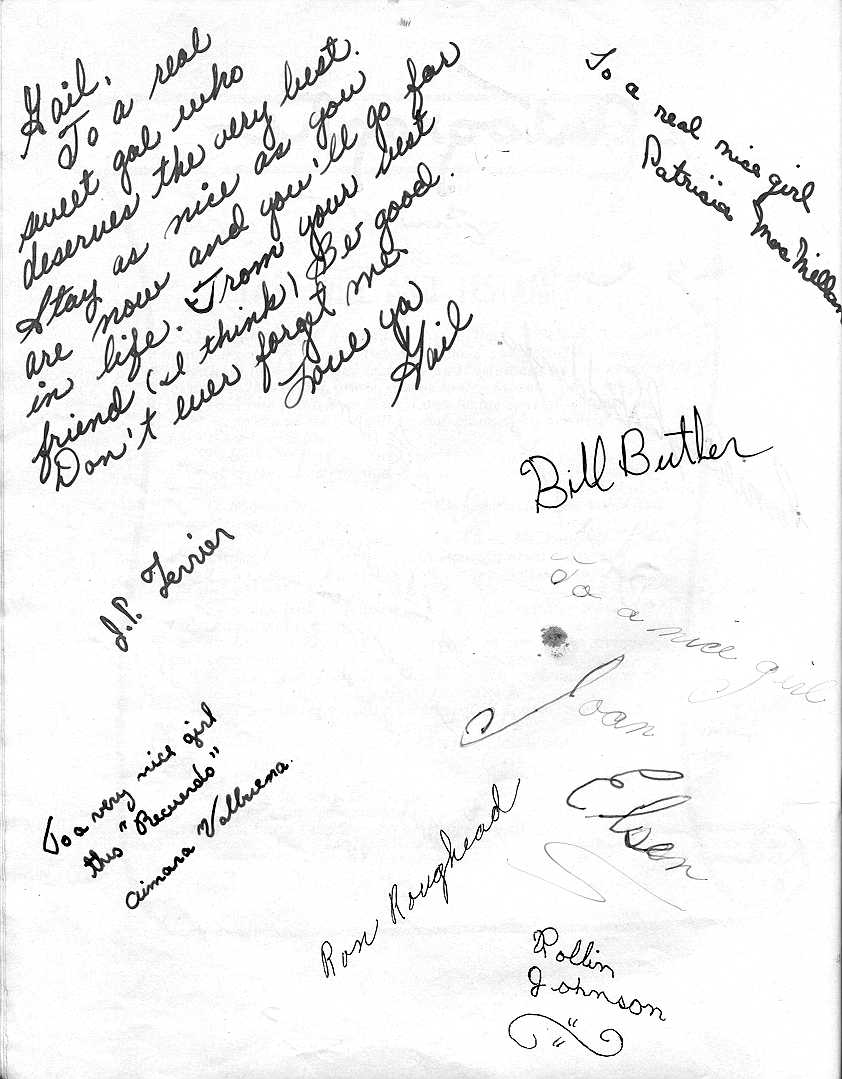 Gail,
To a real
sweet gal who
deserves the very best.
Stay as nice as you
are now and you'll go far
in life. From your best
friend (I think) Be good.
Don't ever forget me
Love ya
Gail
To a real nice girl
Patricia MacMillan
Bill Butler
J.P. Terrier
To a nice girl
Joan
Elsen
To a very nice girl
this "Recuerdo"
Aimara Valbuena.
Ron Roughead
Rollin
Johnson